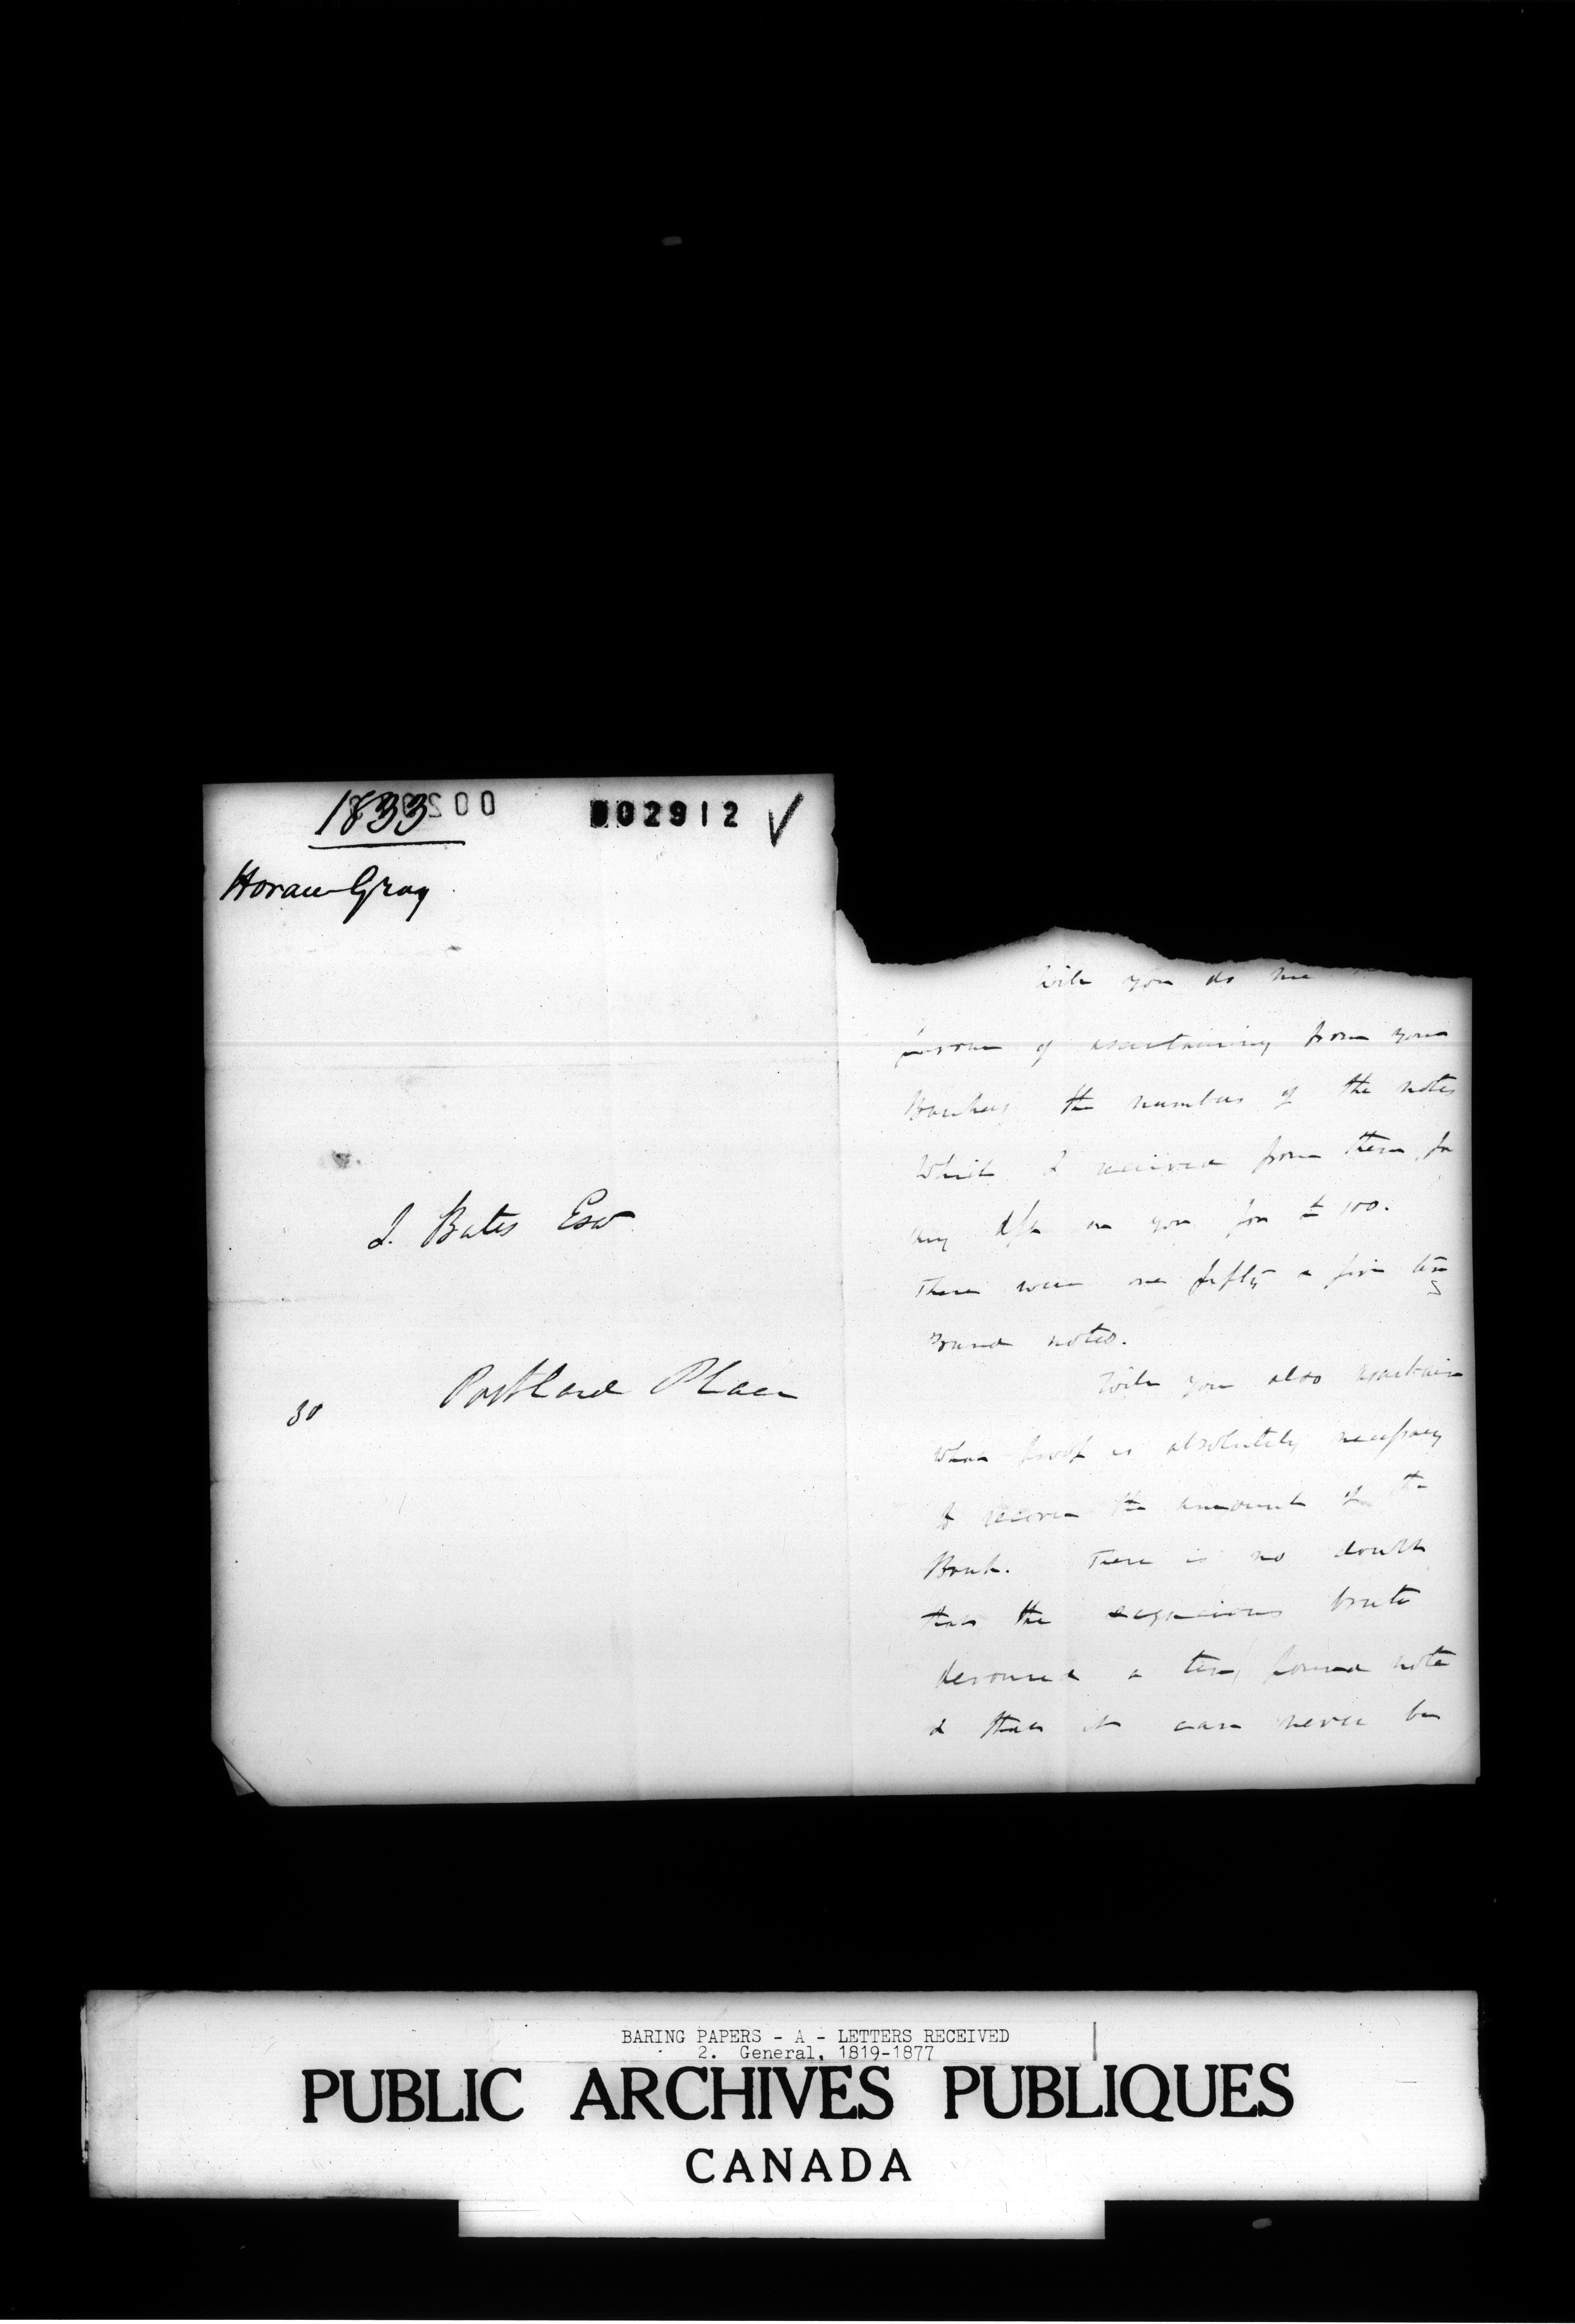 1833
002912 ✓
Horace Gray
J. Bates Esqr
30 Portland Place
Will you do me
favour of ascertaining from your
Bankers the numbers of the notes
which I received from them for
my dft on you for £100.
There were one fifty & five ten
pound notes.
Will you also ascertain
what proof is absolutely necessary
to recover the amount of the
Bank. There is no doubt
that the sagacious brute
devoured a ten pound note
& that it can never be
BARING PAPERS - A - LETTERS RECEIVED
2. General, 1819-1877
PUBLIC ARCHIVES PUBLIQUES
CANADA